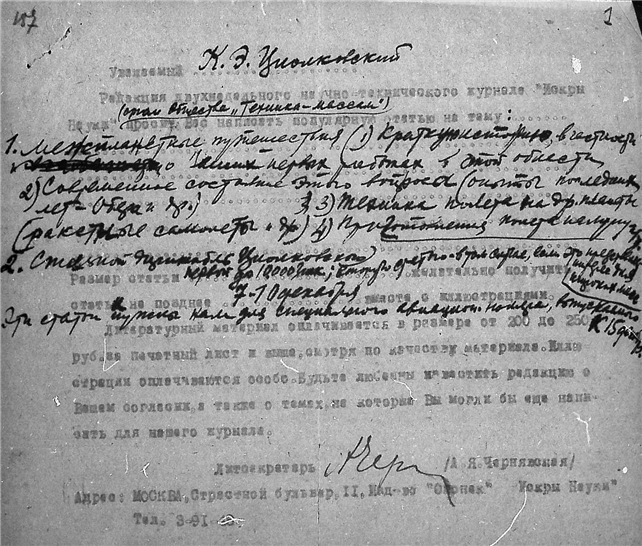 187 1
Уважаемый К. Э. Циолковский
Редакция двухнедельного научно-технического журнала "Искры
(орган общества „Техника-массам")
Науки" просит Вас написать популярную статью на тему:
1. Межпланетные путешествия (1) Краткую историю, в частности
о Ваших первых работах в этой области
2) Современное состояние этого вопроса (опыты последних
лет - Оберта и др.) 3) Техника полета на др. планеты
(ракетные самолеты и др.) 4)
2. Стальной дирижабль Циолковского
первой до 10000 зн.;
Размер статьи желательно получить
статью не позднее 7-10 декабря вместе с иллюстрациями.
Эти статьи нужны нам для специального авиацион. номера, выпускаемого
Литературный материал оплачивается в размере от 200 до 250
руб. за печатный лист и выше, смотря по качеству материала. Иллю
страции оплачиваются особо. Будьте любезны известить редакцию о
Вашем согласии, а также о темах, на которые Вы могли бы еще напи-
сать для нашего журнала.
Литсекретарь /А.Я.Чернявская/
Адрес: МОСКВА, Страстной бульвар, 11, Изд-во "Огонек" "Искры Науки"
Тел. 3-91